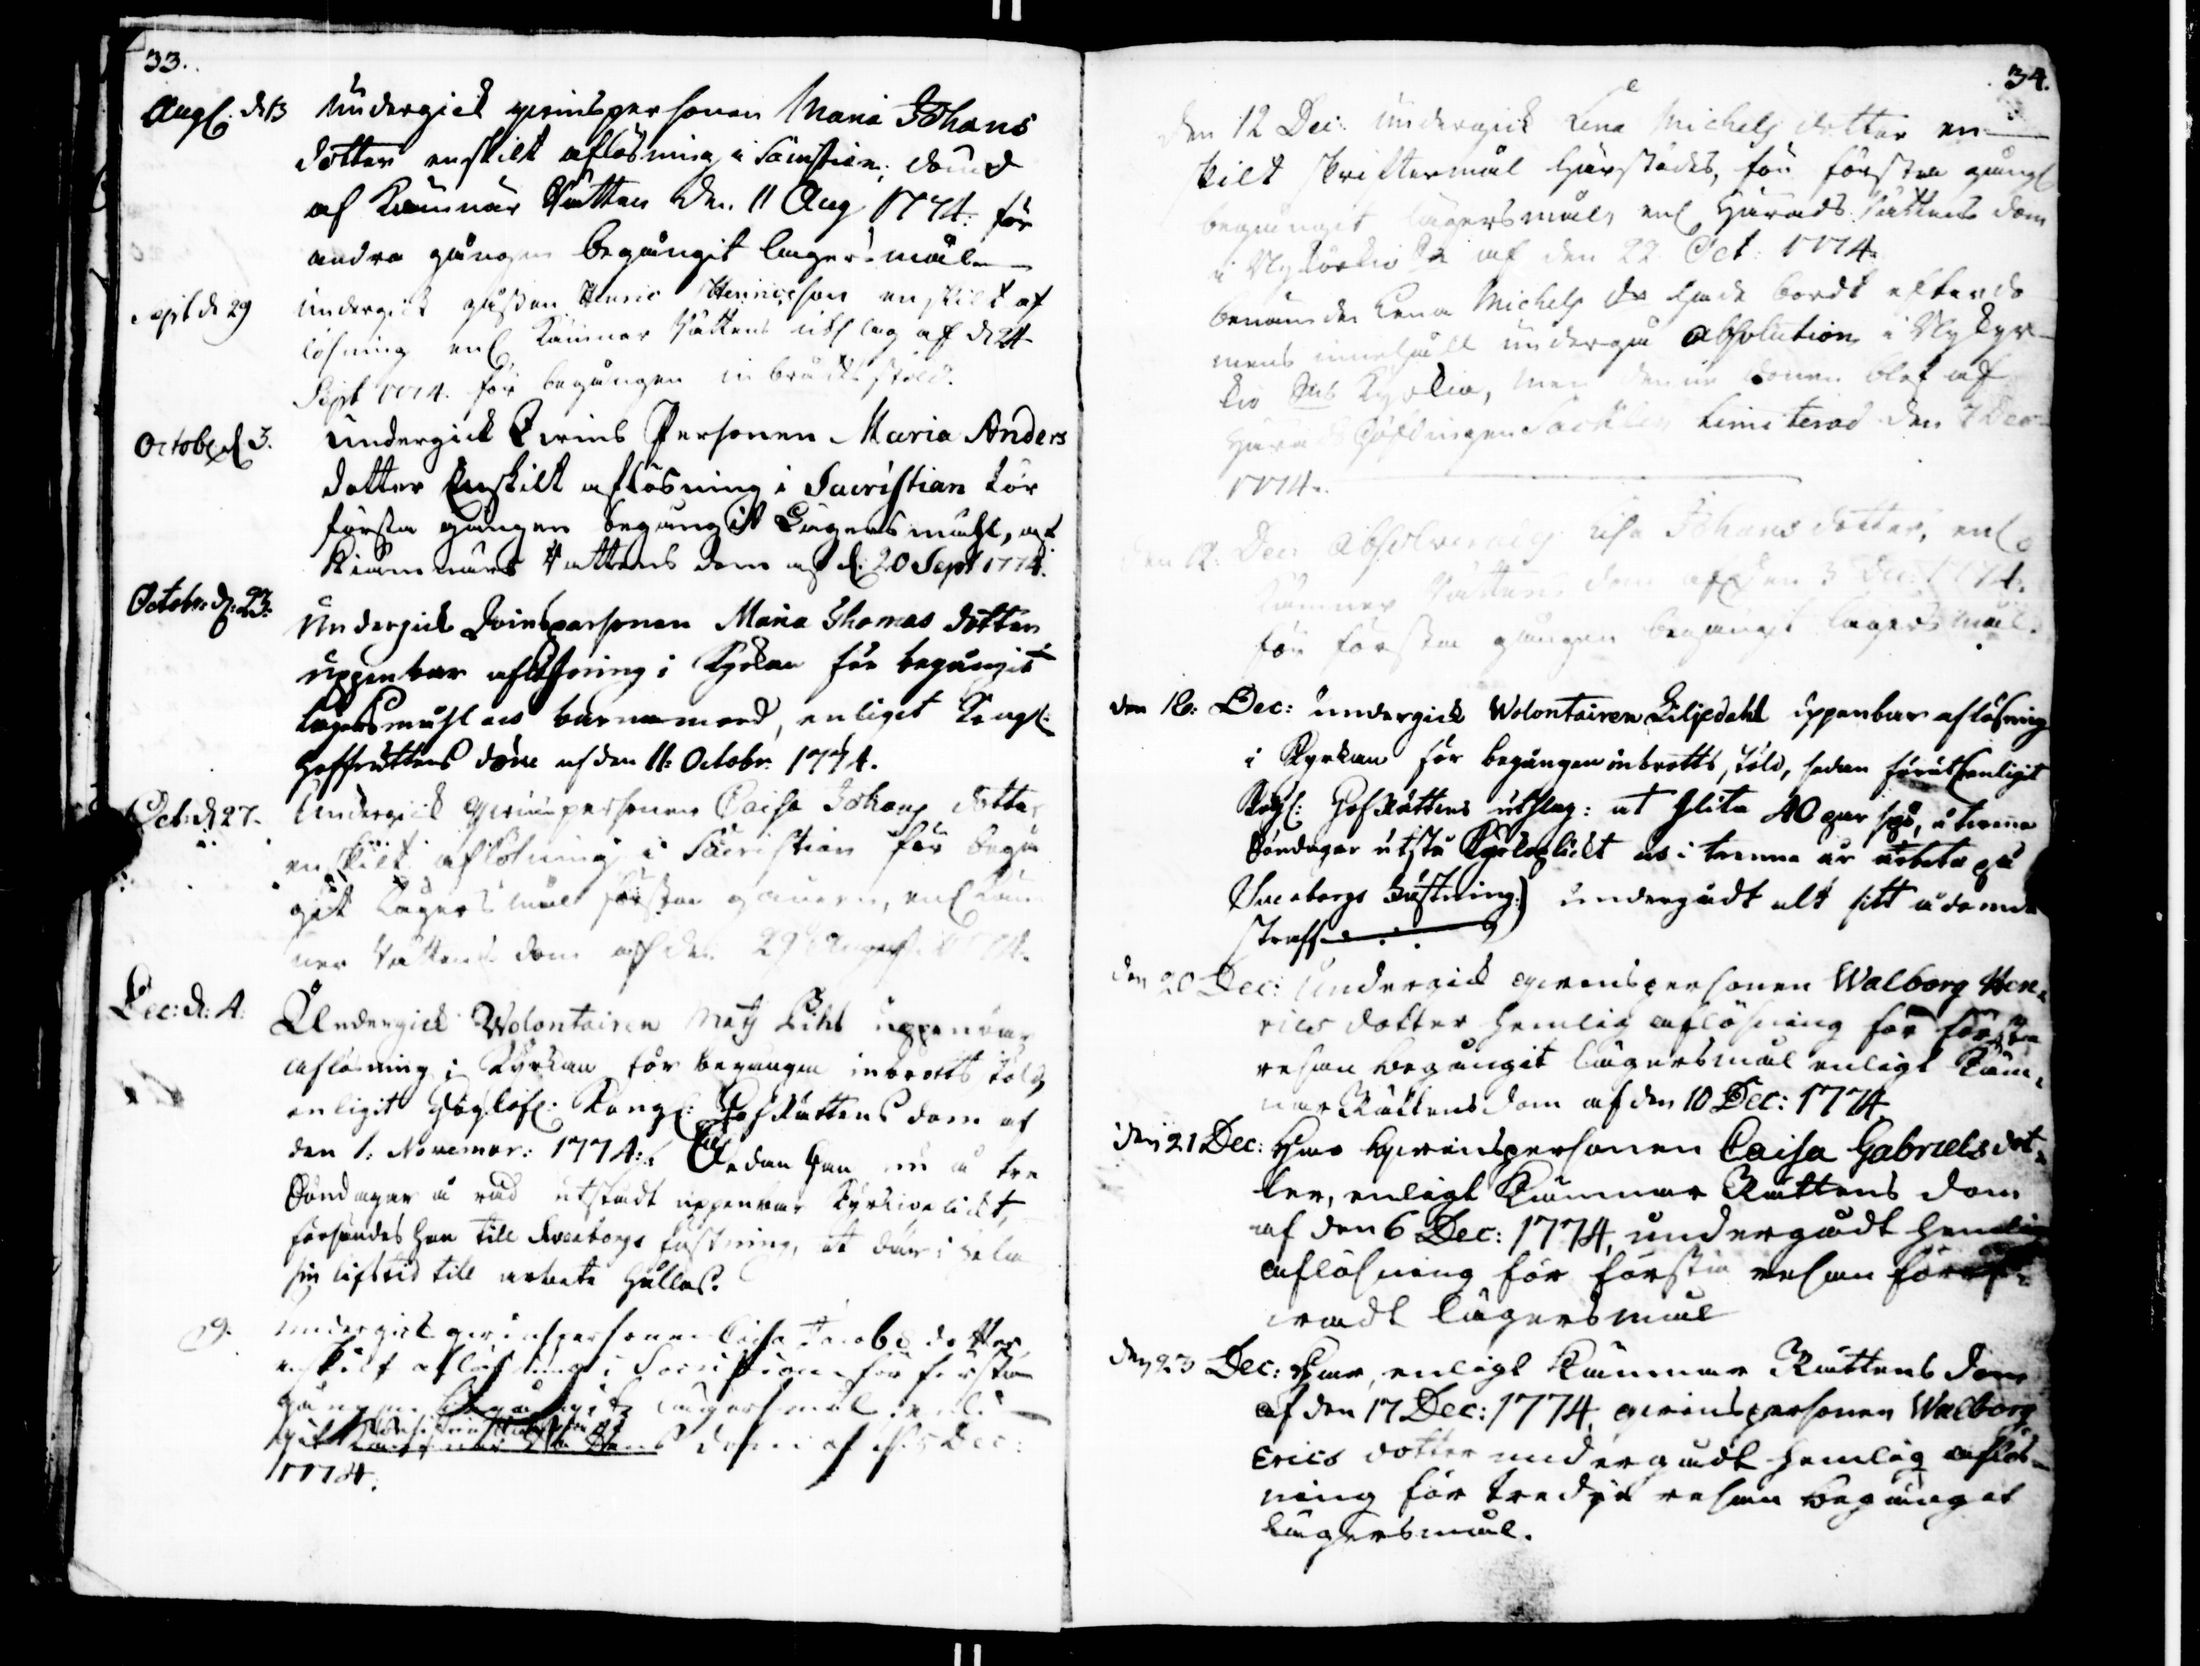 33.
Aug. d. 13 Undergick qvinspersonen Maria Johans
dotter enskilt aflösning i Sacristian, dömd
af Kämnär Rätten den 11 Aug 1774. för
andra gången begångit lägersmål
Sept d 29 undergick gossen Henric Henricsson enskilt af
lösning enl. Kämnär Rättens utslag af d 24
Sept 1774. för begången inbrotts stöld.
Octob. d. 3. undergick Qvins Personen Maria Anders
dotter Enskilt aflösning i Sacristian för
första gången begångit Lägersmåhl, af
Kiämnärs Rättens dom af d. 20 Sept 1774.
Octobr: d: 23: Undergick Qvinspersonen Maria Thomas dotter
uppenbar aflösning i Kyrkan för begångit
Lägersmåhl och barnamord, enligit Kongl:
Hoffrättens dom af den 11: Octobr: 1774.
Oct: d 27. Undergick qvinspersonen Caisa Johans dotter
enskilt aflösning i Sacristian för begån
git Lägersmål första gången, enl Käm
ner Rättens dom af den 29 August 1774.
Dec: d: 4: Undergick Volontairen Mats Liht uppenbar
aflösning i Kyrkan för begången inbrotts stöld,
enligit Höglofl: Kongl: Hof Rättens dom af
den 1. Novemor: 1774: Sedan han nu å tre
Söndagar å rad utstådt uppenbar Kyrkioplickt,
försändes han till Sveaborgs fästning, at där i hela
sin lifstid till arbete hållas.
9. undergick qvinspersonen Caisa Jacobs dotter
enskilt aflösning i Sacristian för första
gången begångit lägersmål enli
git Kämner Rättens dom af d. 5 Dec:
1774.
34.
den 12 Dec: undergick Lena Michels dotter en
skilt skriftermål härstädes, för första gång
begångit lägersmål, enl Härads Rättens dom
i Nykyrkio af den 22 Oct: 1774.
benämde Lena Michels dr hade bordt efter do
mens innehåll undergå Absolution i Nykyr
kio Kyrkia, men denne domen blef af
Härads Höfdingen limiterad den 7 Dec
1774.
den 12. Dec: Absolverades Johans dotter, enl
Kämner Rättens dom af den 3 Dec: 1774.
för första gången begångit lägersmål.
den 18: Dec: undergick Wolontairen Liljedahl uppenbar aflösning
i Kyrkan för begången inbrotts stöld, sedan förut enligit
Kngl: Hof Rättens utslag: at slita 40 par spö, å trenne
Söndagar utstå Kyrkoplickt och i trenne år arbeta på
Sveaborgs Fästning:) undergådt alt sitt ådömda
straff
den 20 Dec: Undergick qvinspersonen Walborg Hen¬
rics dotter hemlig aflösning för första
resan begångit lägersmål enligt Käm¬
när Rättens dom af den 10 Dec: 1774.
den 21 Dec: Har Qvinspersonen Caisa Gabriels dot¬
ter, enligt Kämnär Rättens dom
af den 6 Dec: 1774, undergådt hemlig
aflösning för första resan föröf¬
wadt lägersmål
den 23 Dec: Har, enligt Kämnär Rättens dom
af den 17 Dec: 1774, qvinspersonen Walborg
Erics dotter undergådt hemlig aflös¬
ning för tredje resan begånget
lägersmål.